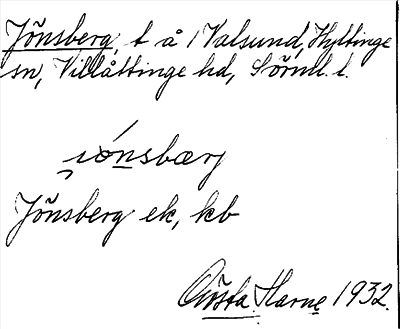 Jönsberg, t å i Valsund, Hyltinge
sn, Villåttinge hd, Sörml. l.
jo̱nsbærj
Jönsberg ek, kb
Gösta Harne 1932.